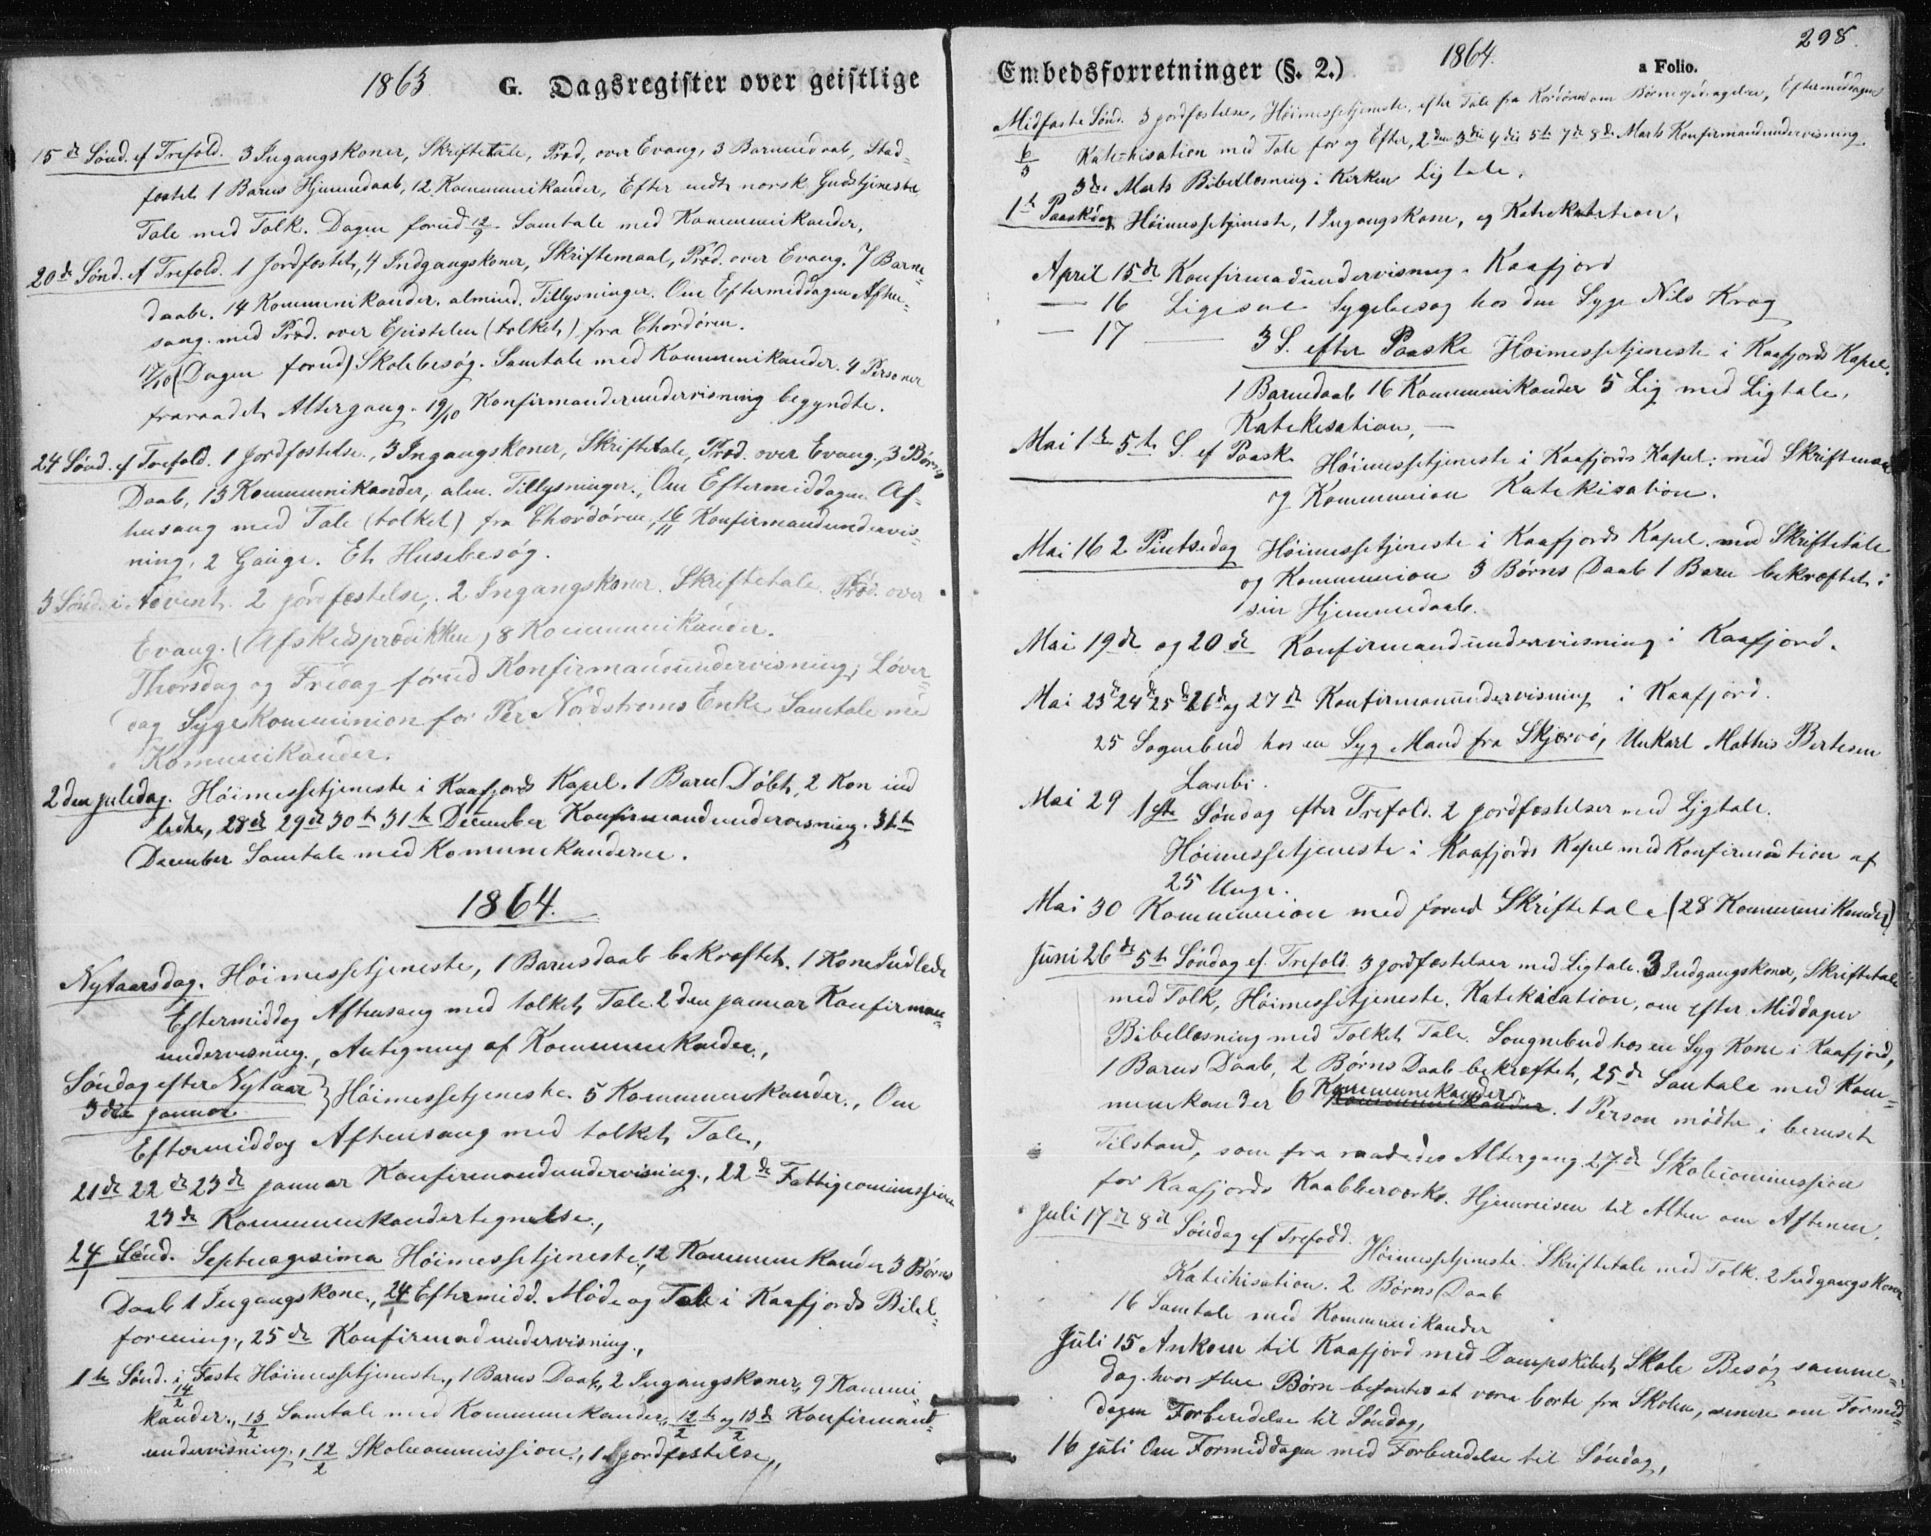 1863
G. Dagsregister over geistlige
15de Sønd. ef Trefold. 3 Ingangskoner, Skriftetale, Præd, over Evang, 3 Barnedaab, Stad-
fæstet 1 Barns Hjemmedaab, 12 Kommunikander, Efter endt norsk Gudstjeneste
Tale med Tolk. Dagen forud 12/9 Samtale med Kommunikander,
20de Sønd. ef Trefold. 1 Jordfæstet, 4 Indgangskoner, Skriftemaal, Præd. over Evang. 7 Barne-
daabe. 14 Kommunikander. almind. Tillysninger. Om Eftermiddagen Aften-
sang med Præd. over Epistelen (tolket) fra Chordøren.
17/10 (Dagen forud) Skolebesøg. Samtale med Kommunikander. 4 Personer
fraraadet Altergang. 19/10 Konfirmanderundervisning begyndte.
24 Sønd. ef Trefold. 1 Jordfæstelse, 3 Ingangskoner, Skriftetale, Præd. over Evang., 3 Børns
Daab, 13 Kommunikander, alm. Tillysninger. Om Eftermiddagen Af-
tensang med Tale (tolket) fra Chordøren, 16/11 Konfirmandundervis-
ning, 2 Gange. Et Husebesøg.
3 Sønd. i Advent. 2 jordfæstelse, 2 Ingangskoner. Skriftetale. Præd. over
Evang. (Afskedsprædikken) 8 Kommunikander.
Thorsdag og Fredag forud Konfirmandundervisning, Løver-
dag Sygekommunion for Per Nordstrøms Enke Samtale med
Komunikander.
2den juledag. Høimessetjeneste i Kaafjords Kapel. 1 Barn Døbt, 2 Kon ind
ledte, 28de 29de 30te 31te December Konfirmandundervisning. 31te
December Samtale med Komunikanderne.
1864.
Nytaarsdag. Høimessetjeneste, 1 Barnsdaab bekræftet. 1 Kone Indledt
Eftermiddag Aftensang med tolket Tale. 2den januar Konfirman-
undervisning., Antegning af Kommunikander.,
Søndag efter Nytaar } Høimessetjeneste. 5 Kommunikander., Om
3die januar
Eftermiddag Aftensang med tolket Tale.,
21de 22de 23de januar Konfirmandundervisning., 22de Fattigcommission
23de Kommunikandertegnelse.,
24 Sønd. Septuagesima Høimessetjeneste., 12 Kommunikander 3 Børns
Daab 1 Ingangskone., 24/1 Eftermidd. Møde og Tale i Kaafjords Bibel-
forening., 25de Konfirmadundervisning.,
1te Sønd. i Faste Høimessetjeneste., 1 Barns Daab, 2 Ingangskoner, 9 Kommuni-
14/2
kander., 13/2 Samtale med Kommunikander., 12te/2 og 13de/2 Konfirmant-
undervisning., 12/2 Skolecommission., 1 jordfæstelse.,
Embedsforretninger (§. 2.)
1864.
a Folio.
298.
Midfaste Sønd. 3 jordfæstelser, Høimessetjeneste, efter Tale fra Kordøren om Børneopdragelse, Eftermiddagen
6/3 Katechisation med Tale for og Efter, 2den 3die 4die 5te 7de 8de Marts Konfirmandundervisning.
3die Marts Bibellæsning i Kirken Lig tale.
1te Paaskdag Høimessetjeneste, 1 Ingangskone, og Katekisation,
April 15de Konfirmadundervisning. Kaafjord
— 16 Ligesaa Sygebesøg hos den Syge Nils Krag
— 17 — 3 S. efter Paaske Høimessetjeneste i Kaafjords Kapel.
1 Barnedaab 16 Kommunikander 5 Lig med Ligtale,
Katekisation, —
Mai 1te 5te S. ef Paask Høimessetjeneste i Kaafjords Kapel. med Skriftemaal
og Kommunion Katekisation.
Mai 16 2 Pintsedag Høimessetjeneste i Kaafjords Kapel. med Skriftetale
og Kommunion 3 Børns Daab 1 Barn bekræftet i
sin Hjemmedaab.
Mai 19de og 20de Konfirmandundervisning i Kaafjord.
Mai 23de 24de 25de 26de og 27de Konfirmanundervisning i Kaafjord.
25 Sognebud hos en Syg Mand fra Skjervø, Unkarl Mathis Bertesen
Lanbi.
Mai 29 1ste Søndag efter Trefold. 2 jordfæstelser med Ligtale.
Høimessetjeneste i Kaafjords Kapel med Konfirmation af
25 Unge.
Mai 30 Kommunion med forud Skriftetale (28 Kommunikander)
Juni 26de 5te Søndag ef. Trefold. 3 jordfæstelser med Ligtale. 3 Indgangskoner, Skriftetale
med Tolk, Høimessetjeneste, Katekication, om efter Middagen
Bibellæsning med Tolket Tale. Sougnebud hos en Syg Kone i Kaafjord,
1 Barns Daab, 2 Børns Daab bekræftet, 25de Samtale med Kom-
munikander 6 Kommunikander. 1 Person mødte i beruset
Tilstand, som fra raadedes Altergang 27de Skolecommission
for Kaafjords Kaabberværks. Hjemreisen til Alten om Aftenen,
Juli 17de 8de Søndag ef Trefodd. Høimessetjeneste. Skriftetale med Tolk. 2 Indgangskoner
Katekisation. 2 Børns Daab
16 Samtale med Kommunikander
Juli 15 Ankom til Kaafjord med Dampskibet, Skole Besøg samme-
dag. hvor flere Børn befantes at være borte fra Skolen, senere om Formid-
dagen Forberedelse til Søndag,
16 juli Om Formiddagen med Forberedelse til Søndag,